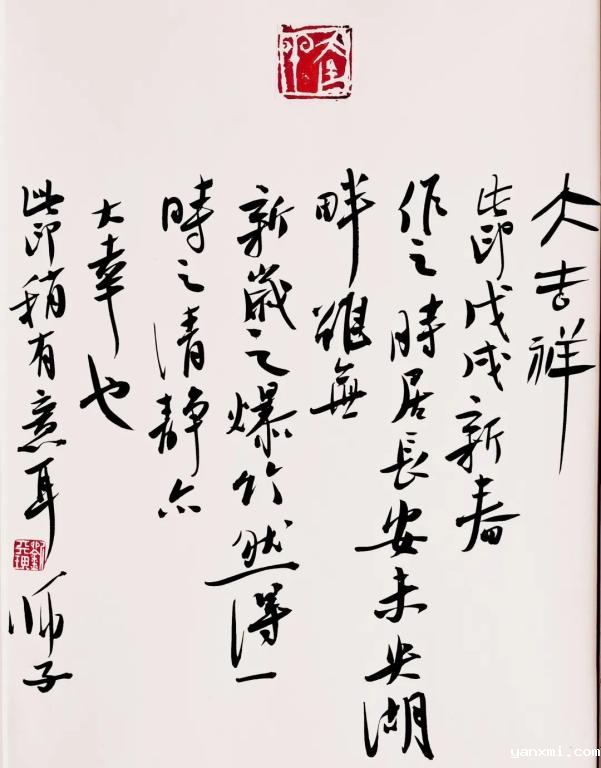 大吉祥
此印戊戌新春
作之時居長安未央湖
畔雖無
新歲之爆竹然得一
時之清靜亦
大幸也
此印稍有意耳
师子
yanxmi.com